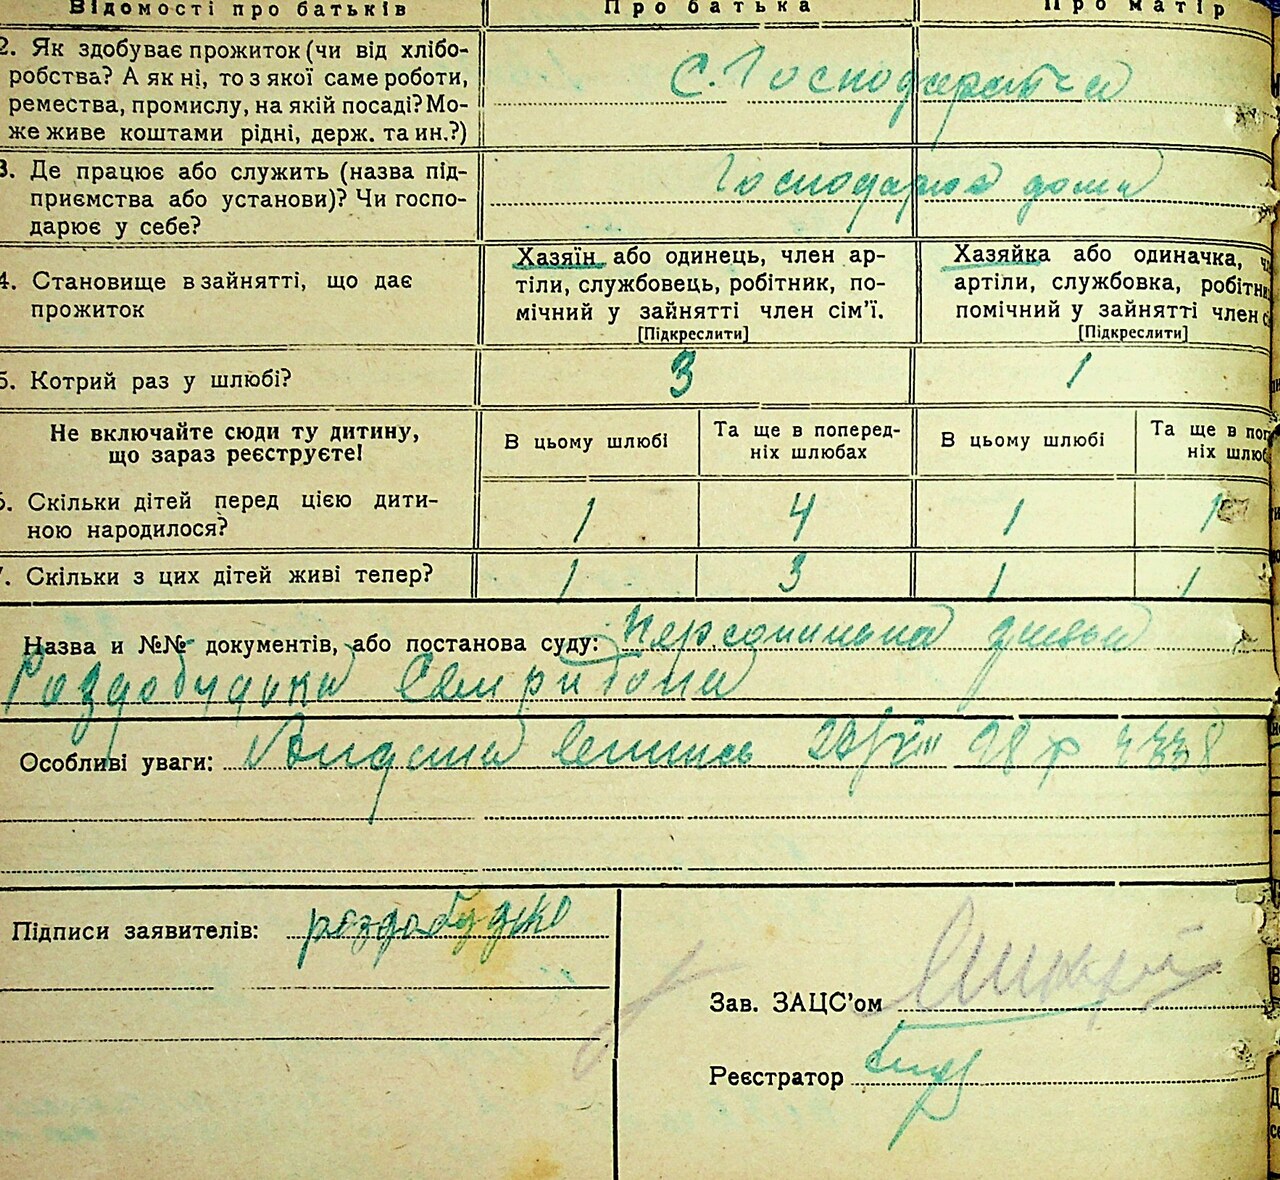 Відомості про батьків Про батька Про матір
2. Як здобуває прожиток (чи від хлібо-
робства? А як ні, то з якої саме роботи,
ремества, промислу, на якій посаді? Мо-
же живе коштами рідні, держ. та ин.?)
С. Господарства
3. Де працює або служить (назва під-
приємства або установи)? Чи госпо-
дарює у себе?
Господарює дома
4. Становище в зайнятті, що дає
прожиток
Хазяїн або одинець, член ар-
тіли, службовець, робітник, по-
мічний у зайнятті член сім’ї.
[Підкреслити]
Хазяйка або одиначка,
артіли, службовка,
помічний у зайнятті член
[Підкреслити]
5. Котрий раз у шлюбі? 3 1
Не включайте сюди ту дитину,
що зараз реєструєте!
В цьому шлюбі
Та ще в поперед-
ніх шлюбах
В цьому шлюбі
Та ще в
ніх
6. Скільки дітей перед цією дити-
ною народилося?
1 4 1 1
7. Скільки з цих дітей живі тепер? 1 3 1 1
Назва и №№ документів, або постанова суду:
Роздобудька
Особливі уваги: Видана 28
Підписи заявителів: роздабудко
Зав. ЗАЦС’ом
Реєстратор